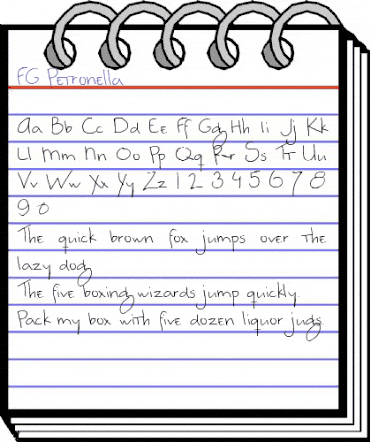 FG Petronella
Aa Bb Cc Dd Ee Ff Gg Hh Ii Jj Kk
Ll Mm Nn Oo Pp Qq Rr Ss Tt Uu
Vv Ww Xx Yy Zz 1 2 3 4 5 6 7 8
9 0
The quick brown fox jumps over the
lazy dog
The five boxing wizards jump quickly.
Pack my box with five dozen liquor jugs